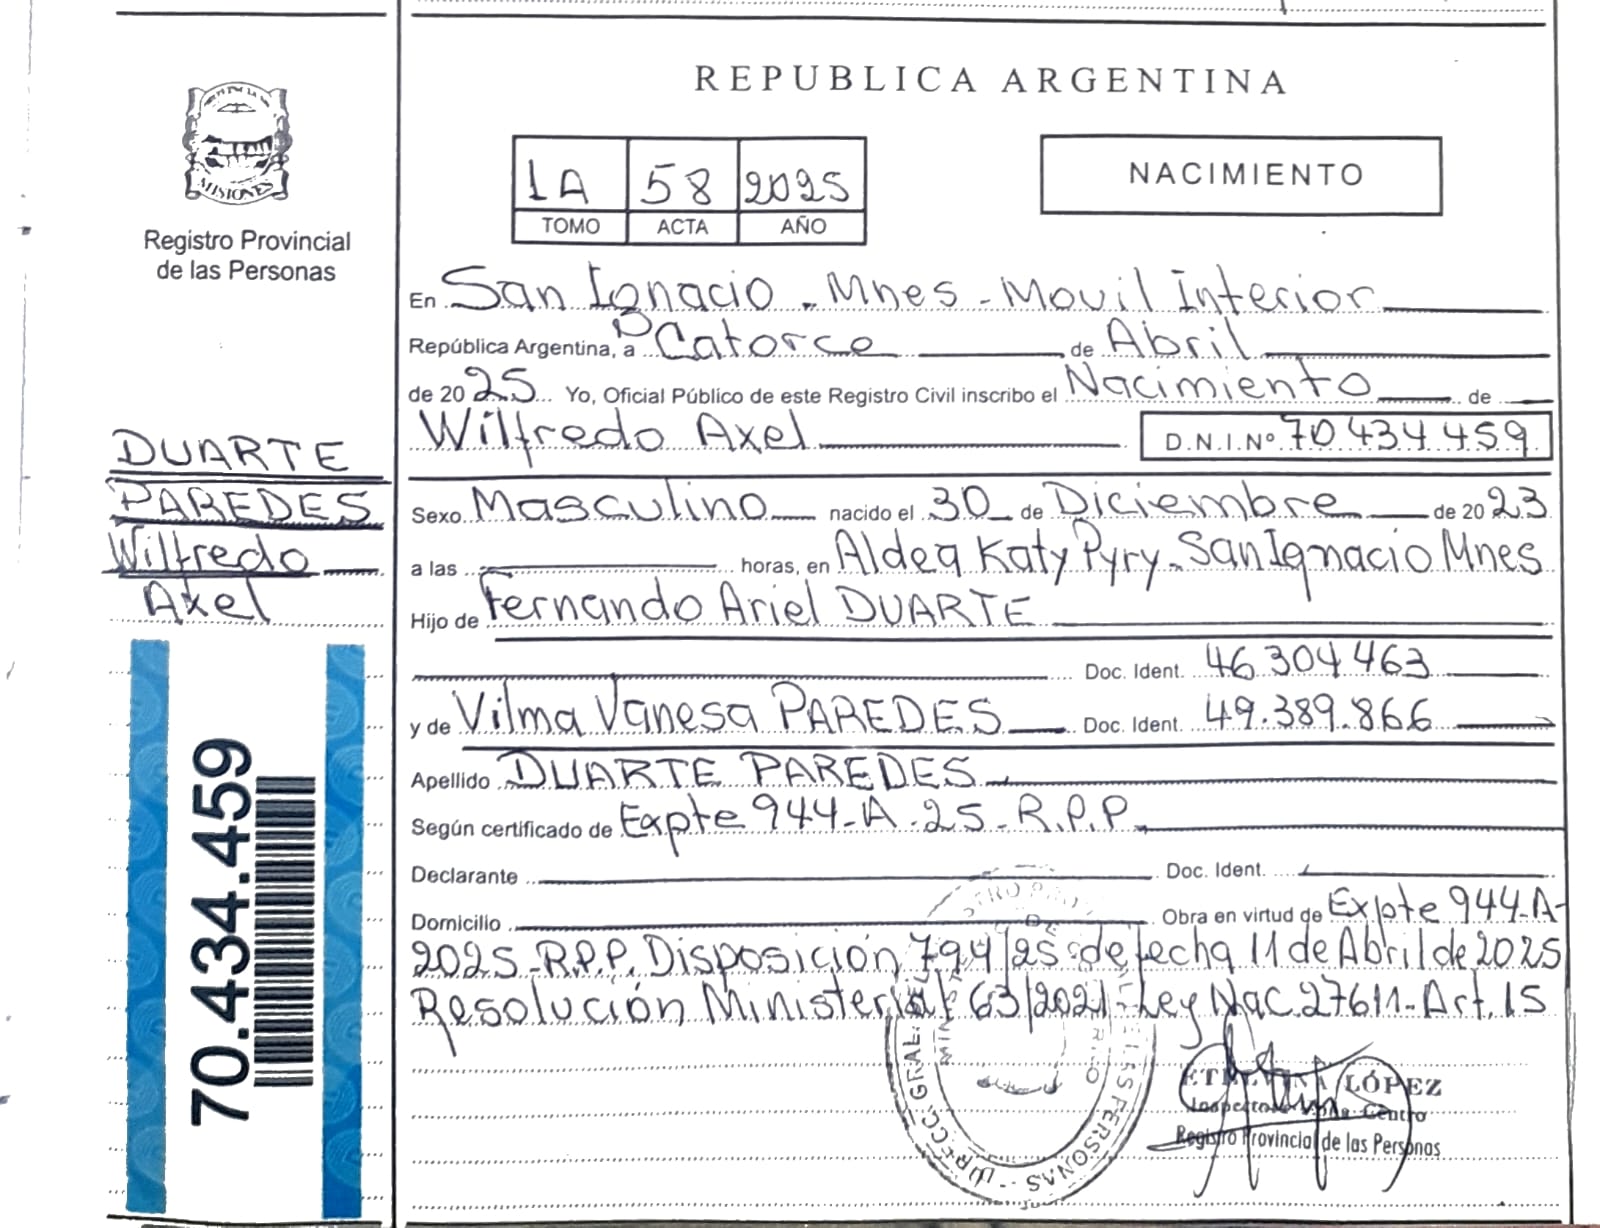 REPUBLICA ARGENTINA
MISIONES
Registro Provincial
de las Personas
1A 58 2025
TOMO ACTA AÑO
NACIMIENTO
En San Ignacio - Mnes - Movil Interior
República Argentina, a Catorce de Abril
de 2025 Yo, Oficial Público de este Registro Civil inscribo el Nacimiento de
Wilfredo Axel D.N.I.Nº 70.434.459
DUARTE
PAREDES
Wilfredo
Axel
Sexo Masculino nacido el 30 de Diciembre de 2023
a las horas, en Aldea Katy Pyry - San Ignacio Mnes
Hijo de Fernando Ariel DUARTE
Doc. Ident. 46.304.463
y de Vilma Vanesa PAREDES Doc. Ident. 49.389.866
Apellido DUARTE PAREDES
Según certificado de Expte 944-A-25-R.P.P.
Declarante Doc. Ident.
Domicilio Obra en virtud de Expte 944-A-
2025-R.P.P. Disposición 794/25 de fecha 11 de Abril de 2025
Resolución Ministerial 63/2021-Ley Nac.27611-Art.15
70.434.459
LÓPEZ
Centro
Registro Provincial de las Personas